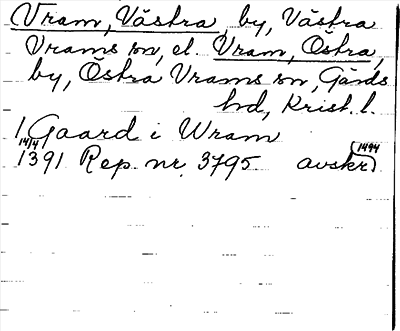 Vram, Västra, by, Västra
Vrams sn, el. Vram, Östra,
by, Östra Vrams sn, Gärds
hd, Krist. l.
1 Gaard i Wram
14/4 1391 Rep. nr. 3795 avskr. (1494)